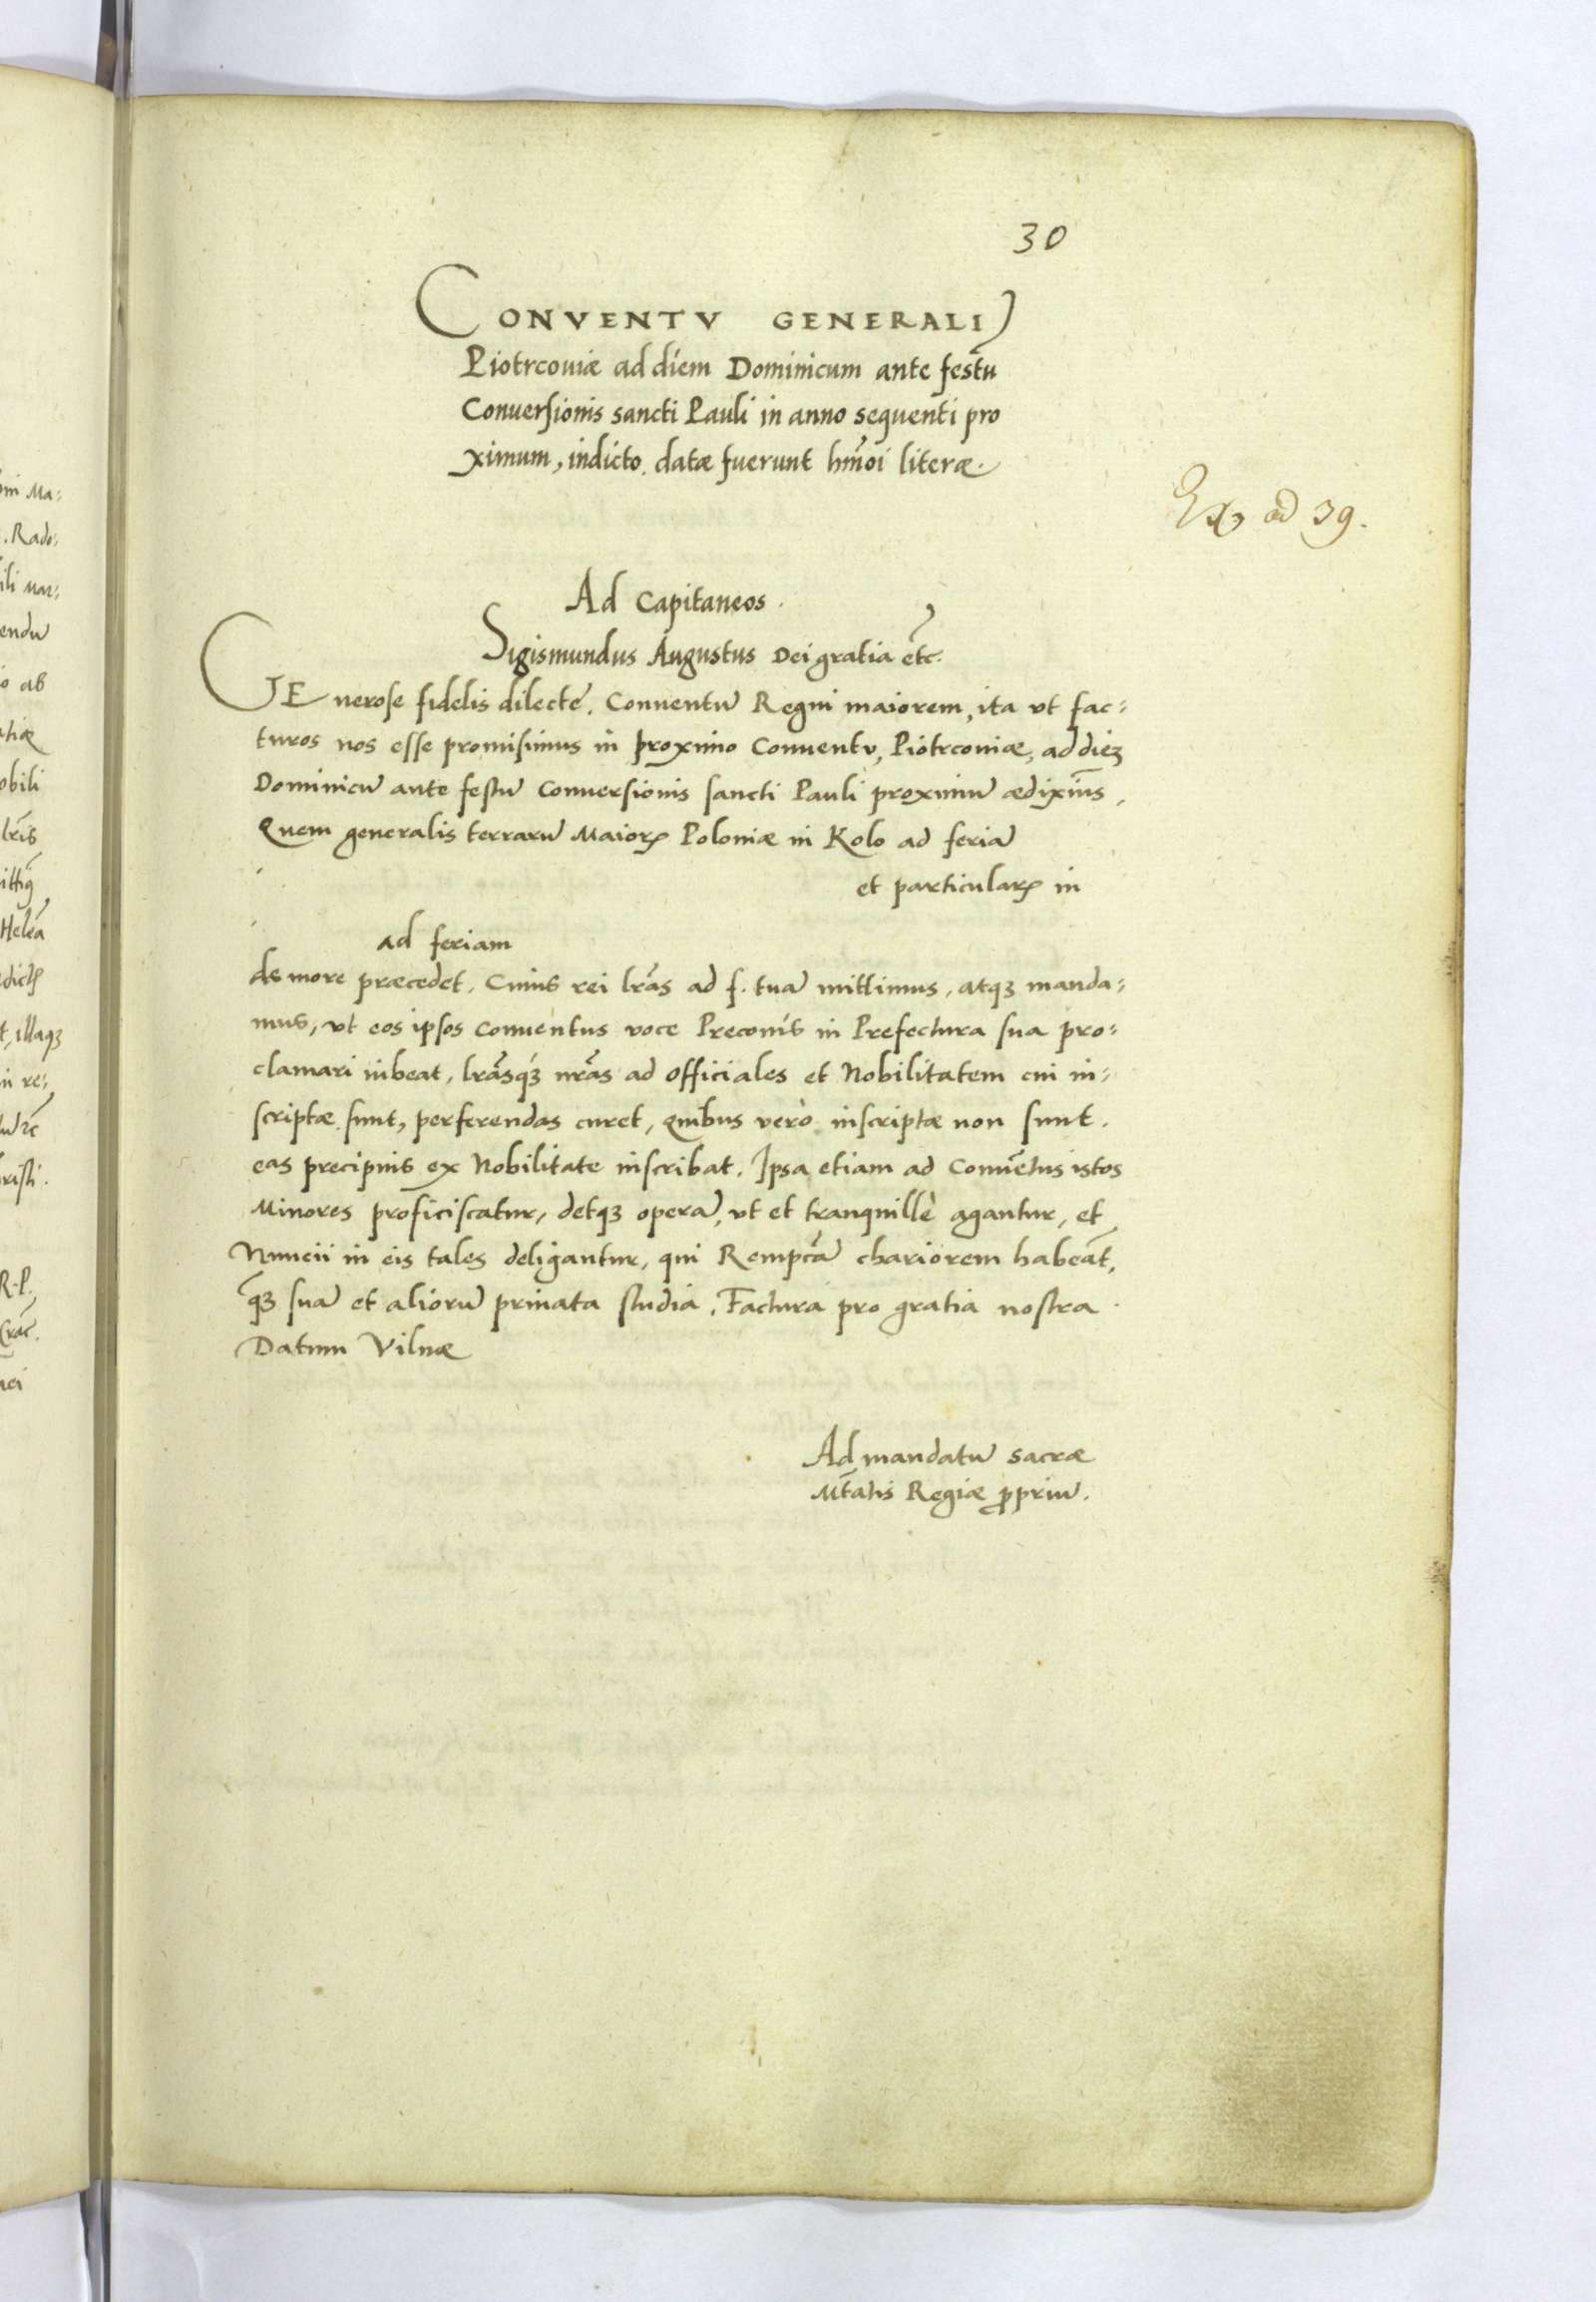 30
CONVENTV GENERALI
Piotrcouiæ ad diem Dominicum ante festū
Conuersionis sancti Pauli in anno sequenti pro
ximum, indicto, datæ fuerunt hm̄oi literæ.
Ex ad 39.
Ad Capitaneos.
Sigismundus Augustus Dei gratia etc.
GEnerose fidelis dilecte. Conuentū Regni maiorem, ita vt fac:
turos nos esse promisimus in proximo Conuentu, Piotrcouiæ, ad diēz
Dominicū ante festū Conuersionis sancti Pauli proximū ædiximꝰ,
Quem generalis terrarū Maiorꝝ Poloniæ in Kolo ad feriā
et particularꝝ in
ad feriam
de more præcedet. Cuius rei lrās ad f. tuā mittimus, atqꝫ manda:
mus, vt eos ipsos Conuentus voce Preconis in Prefectura sua pro:
clamari iubeat, lrāsqꝫ nrās ad officiales et Nobilitatem cui in:
scriptæ sunt, perferendas curet, quibus verò inscriptæ non sunt.
eas precipuis ex Nobilitate inscribat. Ipsa etiam ad Conuētus istos
Minores proficiscatur, detqꝫ operā, vt et tranquillè agantur, et
Nuncii in eis tales deligantur, qui Rempcā chariorem habeāt,
q̄ꝫ sua et aliorū priuata studia. Factura pro gratia nostra.
Datum Vilnæ
Ad mandatū sacræ
Mtatis Regiæ ꝓpriū.